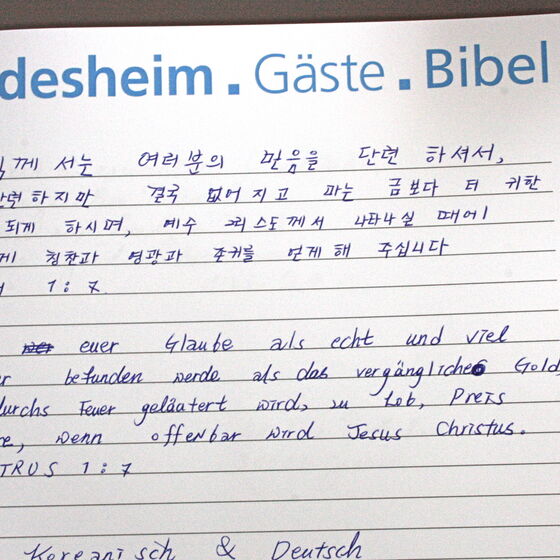 desheim . Gäste . Bibel
께서는 여러분의 믿음을 단련 하셔서,
련하지만 결국 없어 지고 마는 금보다 더 귀한
되게 하시며, 예수 그리스도께서 나타나실 때에
게 칭찬과 영광과 존귀를 얻게 해 주십니다
1:7
euer Glaube als echt und viel
befunden werde als das vergängliche Gold,
durchs Feuer geläutert wird, zu Lob, Preis
e, wenn offenbar wird Jesus Christus.
TRUS 1:7
Koreanisch & Deutsch